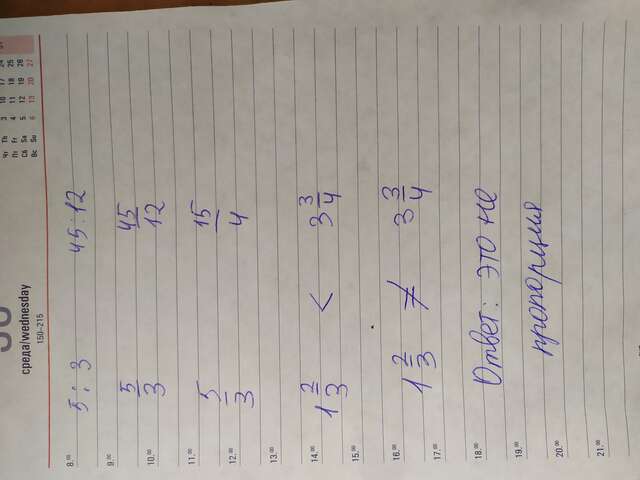 среда/wednesday
150–215
Чт 3 10 17 24
Пт 4 11 18 25
Сб 5 12 19 26
Вс 6 13 20 27
Th
Fr
Sa
Su
8.00
5 : 3 45 : 12
9.00
5/3 45/12
10.00
11.00
5/3 15/4
12.00
13.00
14.00
1 2/3 < 3 3/4
15.00
16.00
1 2/3 ≠ 3 3/4
17.00
18.00
Ответ: это не
19.00
пропорция
20.00
21.00